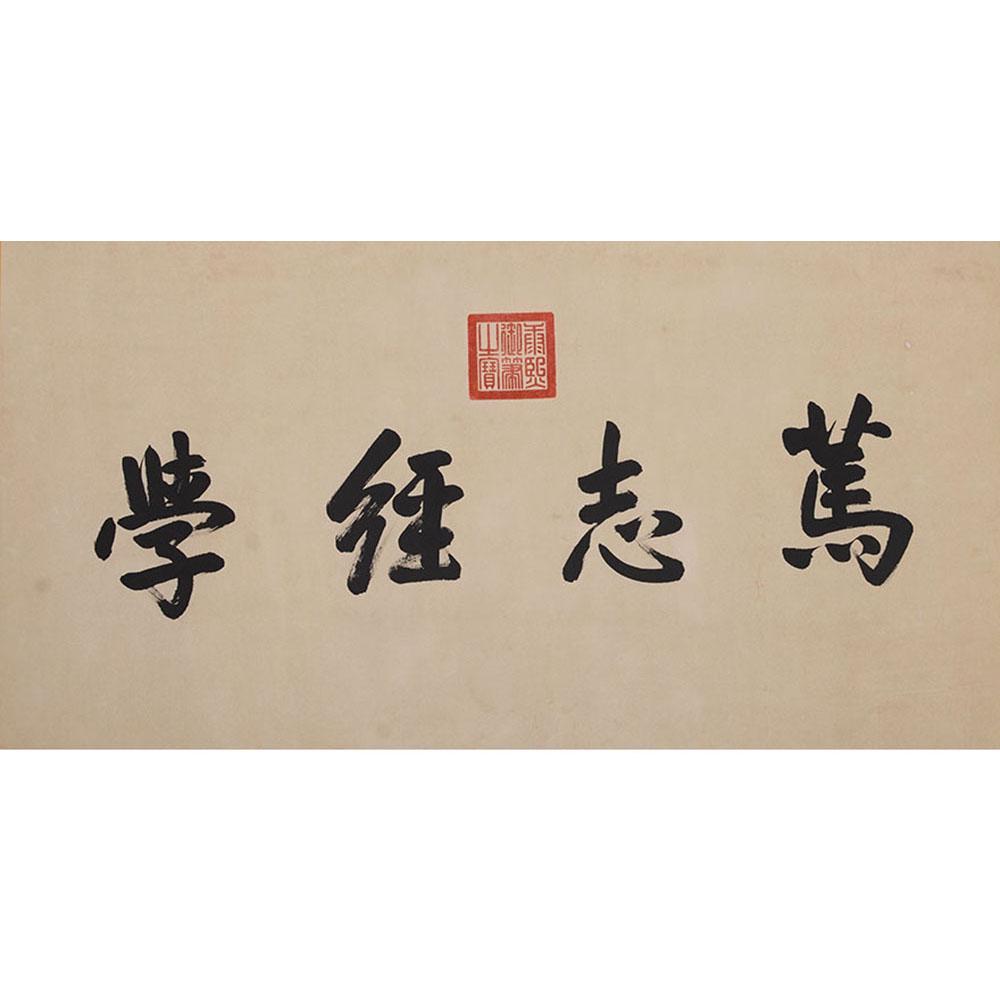 篤志經學
康熙御筆之寶